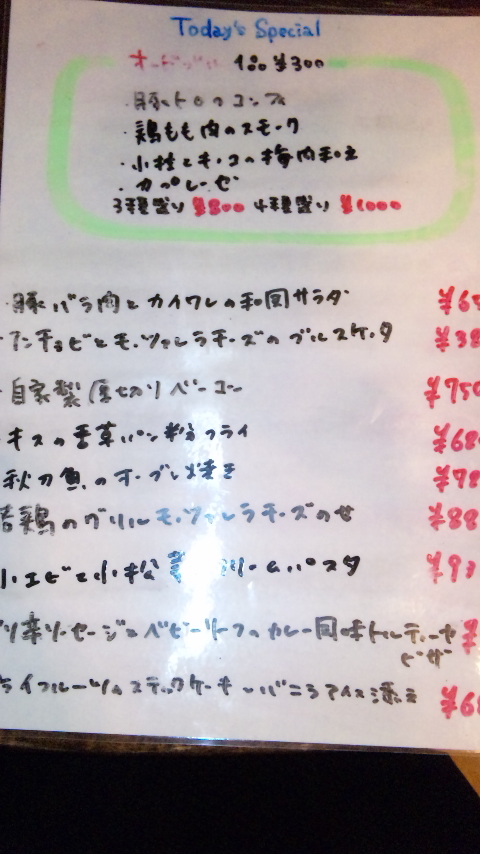 Today's Special
オードブル 1品 ¥300
・豚トロのコンフィ
・鶏もも肉のスモーク
・小柱とキノコの梅肉和え
・カプレーゼ
3種盛り ¥800 4種盛り ¥1000
・豚バラ肉とカイワレの和風サラダ
・アンチョビとモッツァレラチーズのブルスケッタ
・自家製厚切りベーコン ¥750
キスの香草パン粉フライ
秋刀魚のオーブン焼き
若鶏のグリルモッツァレラチーズのせ
小エビと小松 クリームパスタ
ピリ辛ソーセージとベビーリーフのカレー風味トルティーヤ
ピザ
ドライフルーツのスティックケーキ バニラアイス添え